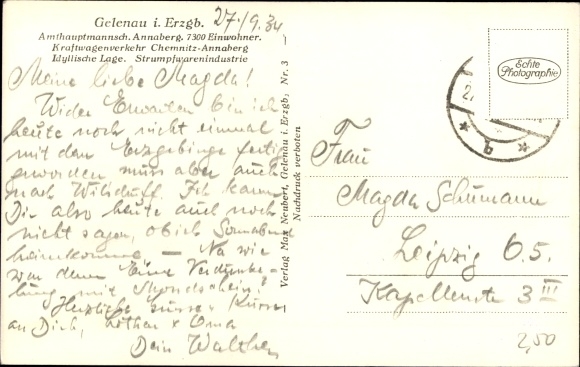 Gelenau i. Erzgb.
27./9.34
Amthauptmannsch. Annaberg. 7300 Einwohner.
Kraftwagenverkehr Chemnitz-Annaberg
Idyllische Lage. Strumpfwarenindustrie
Meine liebe Magda!
Wider Erwarten bin ich
heute noch nicht einmal
mit dem Erzgebirge fertig
geworden muss aber auch
nach Wilsdruff. Ich kann
Dir also heute auch noch
nicht sagen, ob ich Sonnabend
heimkomme. — Na wie
war denn Eure
mit Mondschein?
Herzliche Küsse
an Dich, Lothar & Oma
Dein
Verlag Max Neubert, Gelenau i. Erzgb., Nr. 3
Nachdruck verboten
Echte
Photographie
b
Frau
Magda Schumann
Leipzig O.5.
Kapellenstr. 3 III
2,50